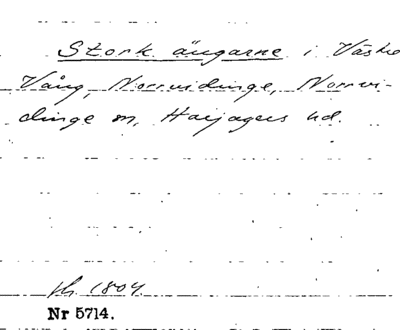 Stork ängarne i Västra
Vång, Norrvidinge, Norrvi-
dinge sn, Harjagers hd.
1804.
Nr 5714.